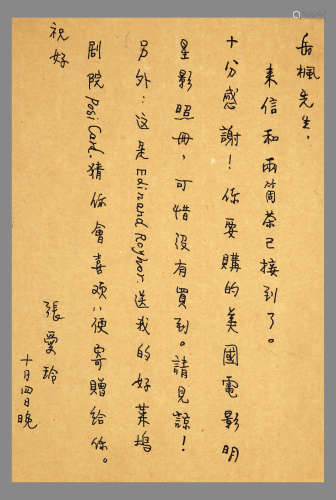 岳楓先生，
來信和兩筒茶已接到了。
十分感謝！你要購的美國電影明
星影照册，可惜沒有買到。請見諒！
另外：这是Edinand Roynor.送我的好萊塢
剧院Posi Card.猜你會喜欢；便寄贈給你。
祝好
張愛玲
十月四日晚